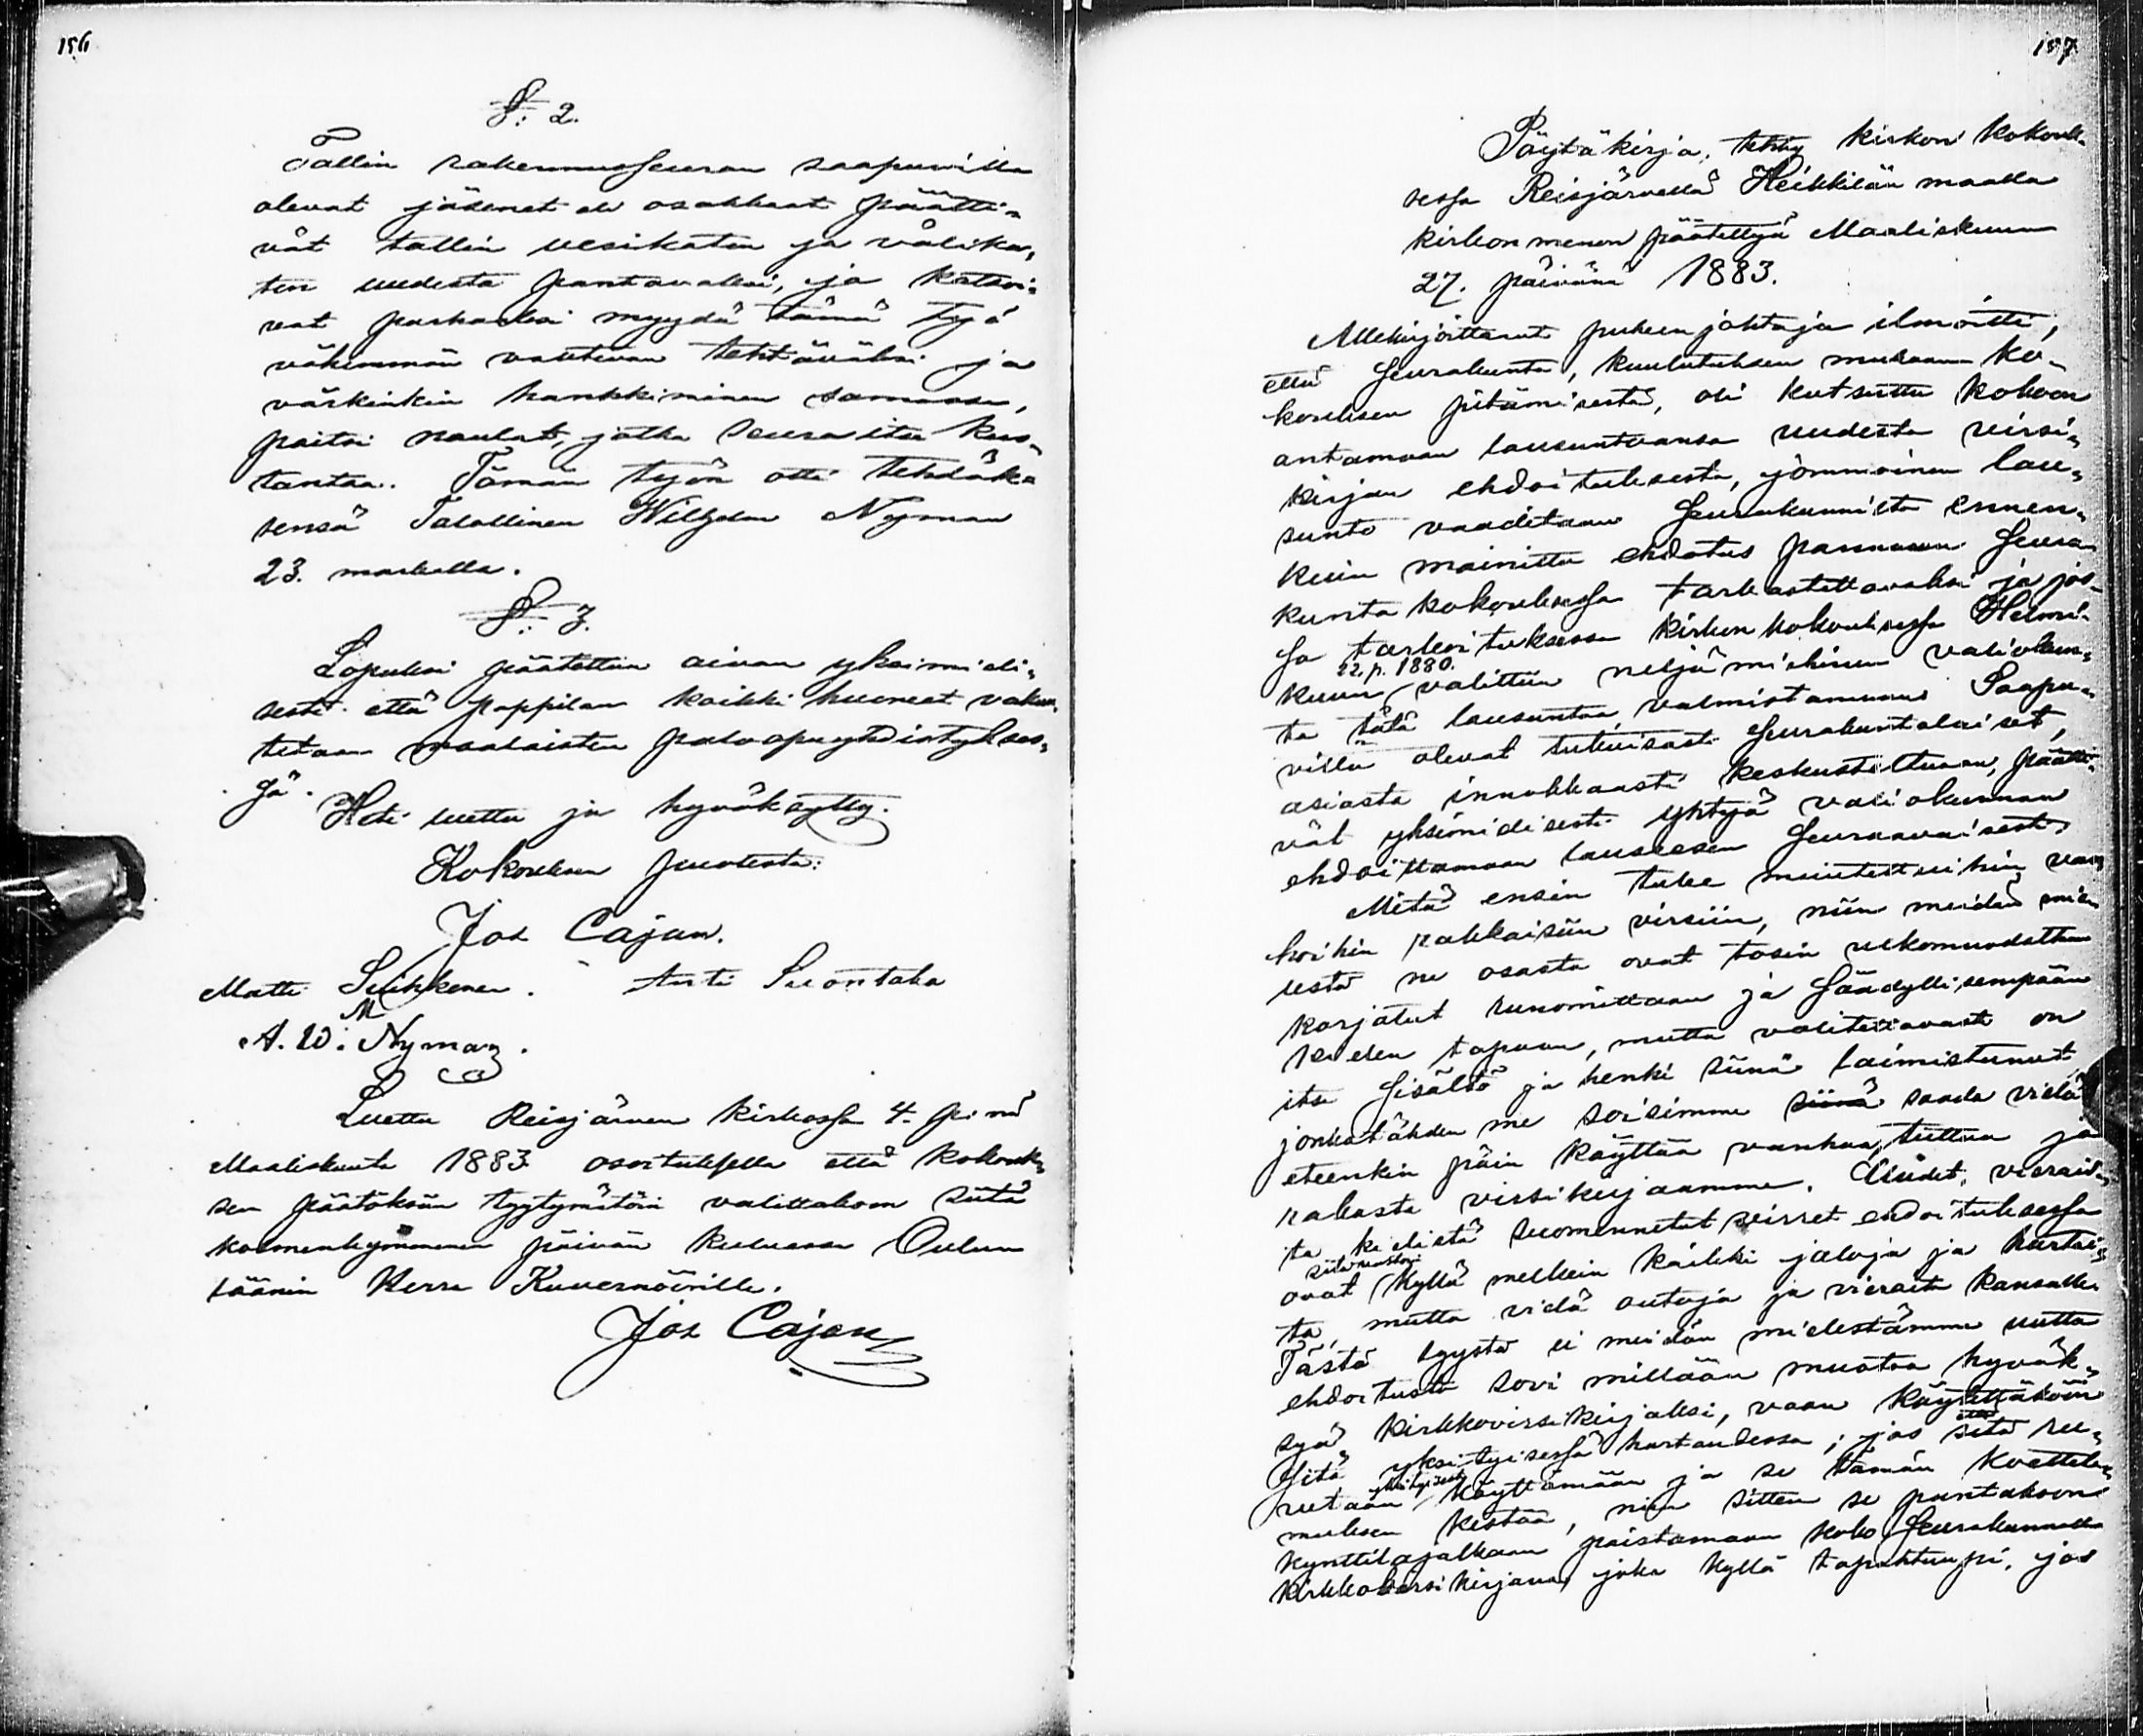 156
§: 2.
Tallin rakennusseuran saapuvilla
olevat jäsenet eli osakkaat päätti-
vät tallin vesikaton ja välika-
ton uudesta pantavaksi, ja katsoi-
vat parhaaksi myydä tämä työ
vähimmän vaativan tehtäväksi ja
värkinkin hankkiminen samassa,
paitsi naulat, jotka seura itse kus-
tantaa. Tämän työn otti tehdäk-
sensä Talollinen Wilhelm Nyman
23. markalla.
§: 3.
Lopuksi päätettiin aivan yksimieli-
sesti että pappilan kaikki huoneet vakuu-
tetaan maalaisten paloapuyhdistykses-
sä.
Heti luettu ja hyväksytty.
Kokouksen puolesta:
Jos Cajan.
Matti Suhkonen. Anti Suontaka
M
A. W. Nyman.
Luettu Reisjärven kirkossa 4. p:nä
Maaliskuuta 1883 osoituksella että kokouk-
sen päätöksiin tyytymätöin valittakoon siitä
kolmenkymmenen päivän kuluessa Oulun
läänin Herra Kuvernöörille.
Jos Cajan
157
Pöytäkirja, tehty kirkon kokouk-
sessa Reisjärvellä Heikkilän maalla
kirkonmenon päätettyä Maaliskuun
27. päivänä 1883.
Allekirjoittanut puheenjohtaja ilmoitti,
että seurakunta, kuulutuksen mukaan ko-
kouksen pitämisestä, oli kutsuttu kokoon
antamaan lausuntoansa uudesta virsi-
kirjan ehdoituksesta, jommoinen lau-
sunto vaaditaan seurakunnilta ennen-
kuin mainittu ehdotus pannaan seura-
kunta kokouksessa tarkastettavaksi ja jos-
sa tarkoituksessa kirkon kokouksessa Helmi-
22. p. 1880.
kuun valittiin neljämiehinen valiokun-
ta tätä lausuntoa valmistamaan. Saapu-
villa olevat lukuisasti seurakuntalaiset,
asiasta innokkaasti keskusteltuaan, päätti-
vät yksimielisesti yhtyä valiokunnan
ehdoittamaan lauseesen seuraavaisesti
Mitä ensin tulee muutettuihin van-
hoihin rakkaisiin virsiin, niin meidän mie-
lestä ne osasta ovat tosin ulkomuodoltaan
korjatut runomittaan ja säädyllisempään
kielen tapaan, mutta valitettavasti on
itse sisältö ja henki siinä laimistunut
jonkatähden me soisimme siinä saada vielä
eteenkin päin käyttää vanhaa, tuttua ja
rakasta virsikirjaamme. Uudet, vierais-
ta kielistä suomennetut virret ehdoituksessa
ovat kyllä melkein kaikki jaloja ja hartai-
ta, mutta vielä outoja ja vieraita kansalle.
Tästä syystä ei meidän mielestämme uutta
ehdoitusta sovi millään muotoa hyväk-
syä kirkkovirsikirjaksi, vaan käytettäköön
sitä yksityisessä hartaudessa; jos sitä ru-
yksityisesti
vetaan käyttämään ja se tämän koettele-
muksen kestää, niin sitten se pantakoon
kynttilajalkaan paistamaan koko seurakunnalle
kirkkovirsikirjana, joka kyllä tapahtuupi, jos